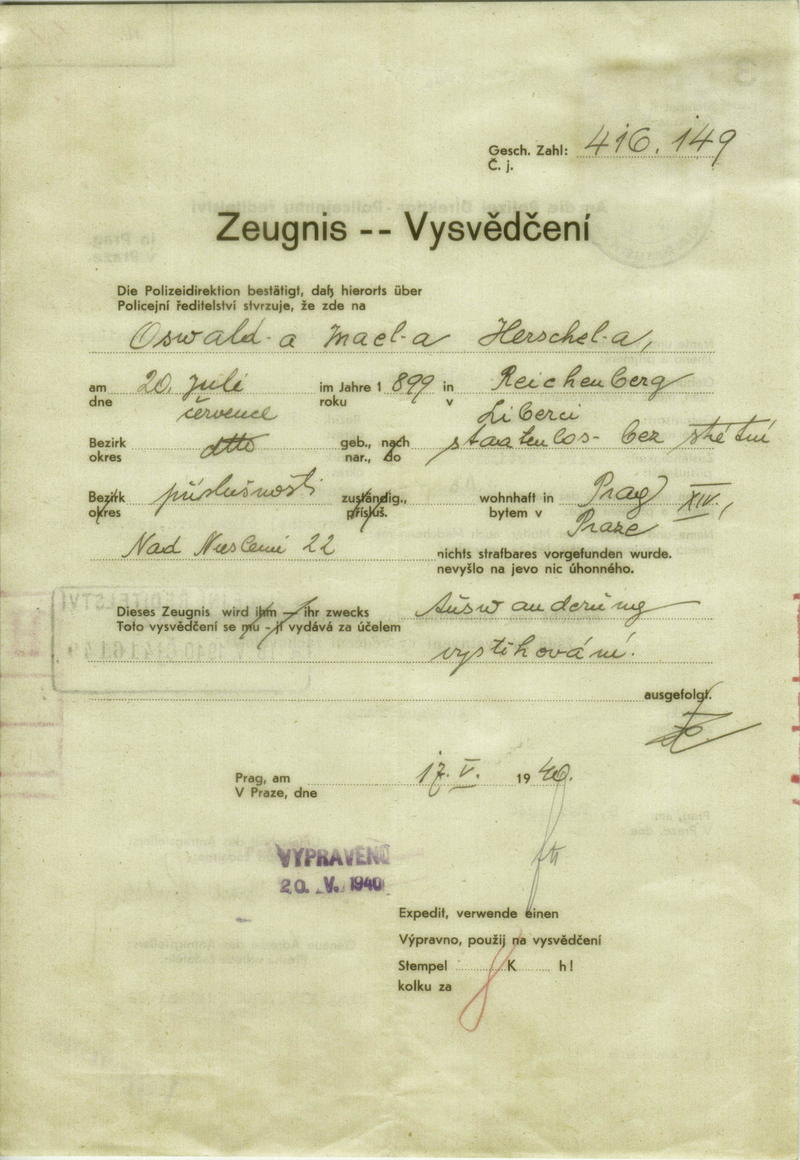 Gesch. Zahl: 416.149
Č. j.
Zeugnis -- Vysvědčení
Die Polizeidirektion bestätigt, daß hierorts über
Policejní ředitelství stvrzuje, že zde na
Oswald-a Israel-a Herschel-a,
am 20. Juli im Jahre 1 899 in Reichenberg
dne července roku v Liberci
Bezirk dtto geb., nach staatenlos- bez státní
okres nar., do
Bezirk příslušnosti zuständig., wohnhaft in Prag XIV.,
okres přísluš. bytem v Praze
Nad Nuslemi 22 nichts strafbares vorgefunden wurde.
nevyšlo na jevo nic úhonného.
Dieses Zeugnis wird ihm — ihr zwecks Auswanderung
Toto vysvědčení se mu - jí vydává za účelem
vystěhování.
ausgefolgt.
Prag, am 17. V. 19 40.
V Praze, dne
VYPRAVENO
20. V. 1940
Expedit, verwende einen
Výpravno, použij na vysvědčení
Stempel K h!
kolku za